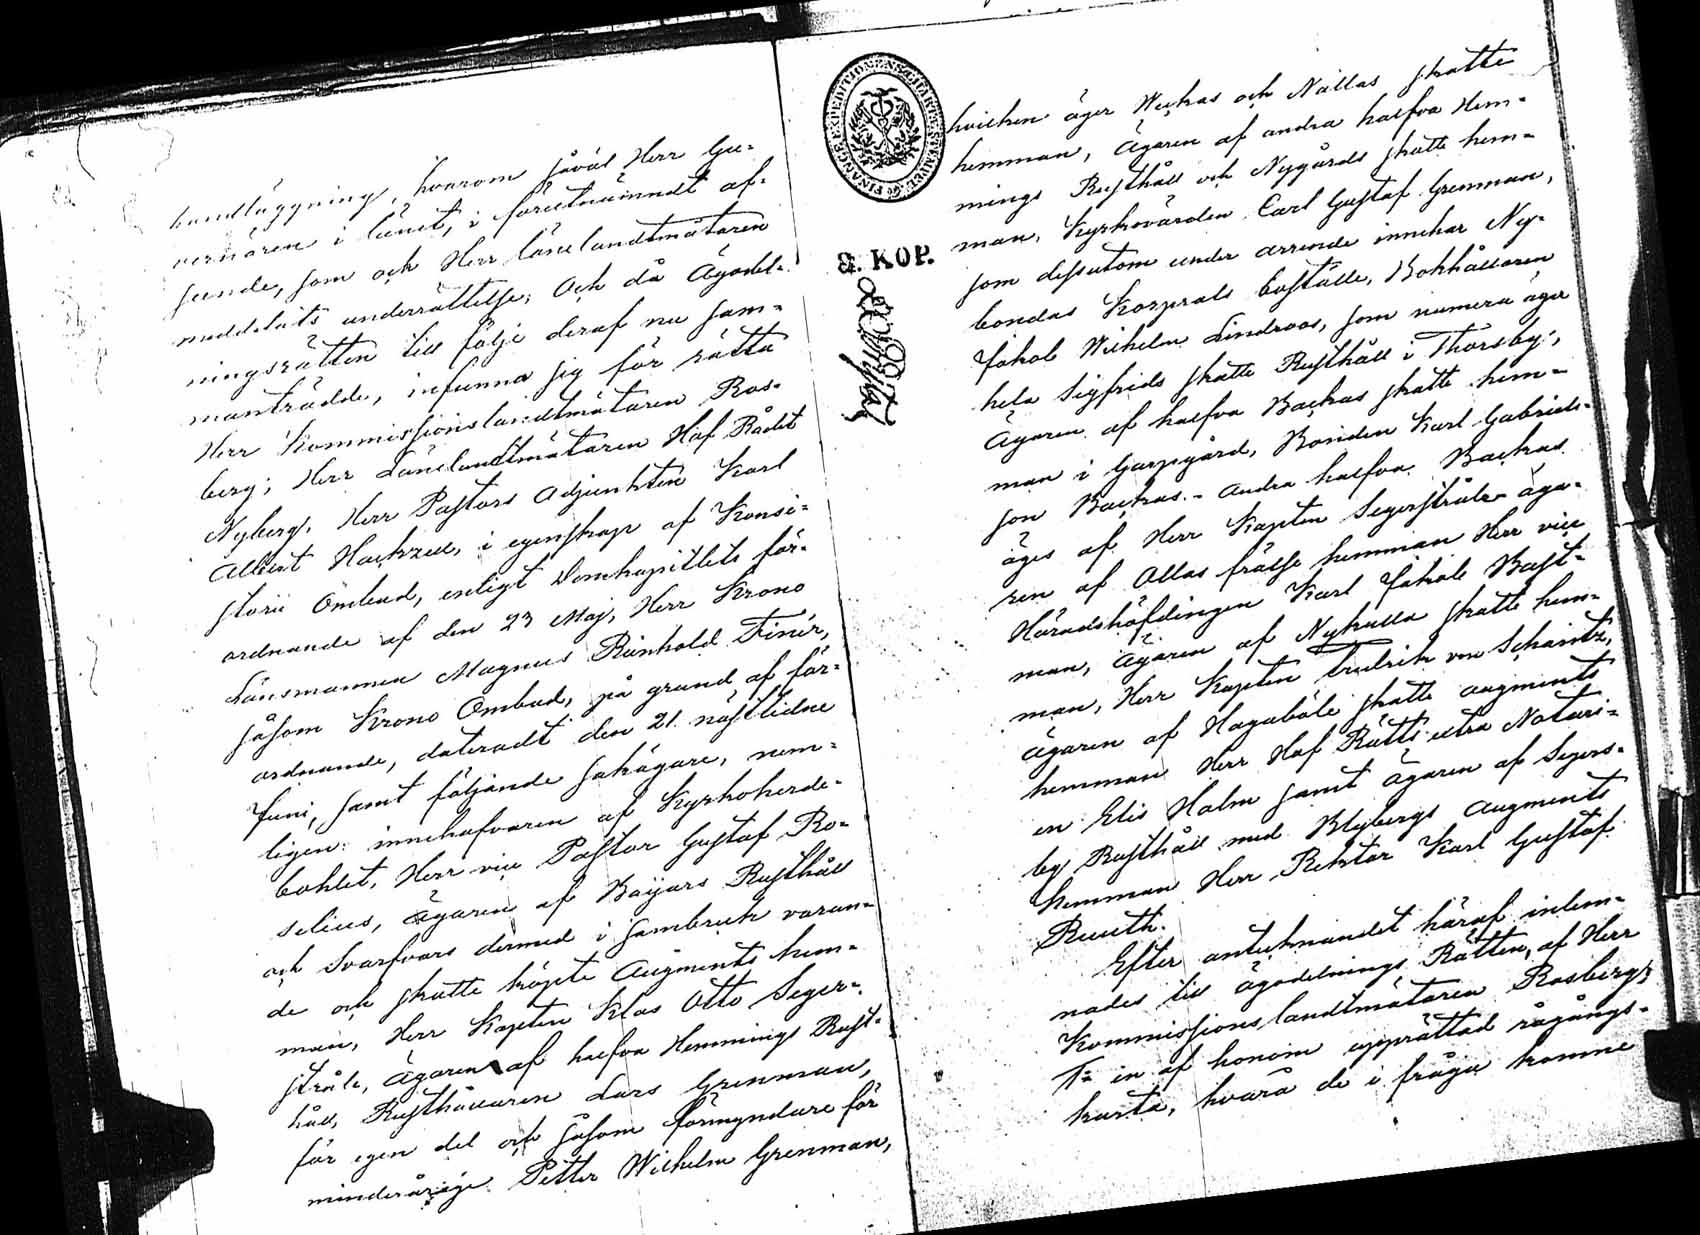 handläggning, hvarom såväl Herr Gu-
vernören i länet, i förutnämndt af-
seende, som och Herr Länelandtmätaren
meddelats underrättelse; Och då Ägodel-
ningsrätten till följe deraf nu sam-
manträdde, infunno sig för rätta
Herr Kommissionslandtmätaren Ros-
berg; Herr Länelandtmätaren Hof Rådet
Nyberg, Herr Pastors Adjunkten Karl
Albert Hackzell, i egenskap af Konsi-
storii Ombud, enligt Domkapitlets för-
ordnande af den 23 Maj, Herr Krono
Länsmannen Magnus Reinhold Finér,
såsom Krono Ombud, på grund af för-
ordnande, dateradt den 21. nästlidne
Juni, samt följande sakägare, nem-
ligen: innehafvaren af Kyrkoherde-
bohlet, Herr vice Pastor Gustaf Ro-
selius, Ägaren af Baijars Rusthåll
och Svarfvars dermed i sambruk varan-
de och skatte köpte Augments hem-
man, Herr Kapten Klas Otto Seger-
stråle, Ägaren af halfva Hemmings Rust-
håll, Rusthållaren Lars Grenman,
för egen del och såsom förmyndare för
minderårige Petter Wilhelm Grenman,
FINANCE EXPEDITIONENS CHARTÆ STEMPEL
& KOP.
hvilken äger Weckas och Nällas skatte
hemman, Ägaren af andra halfva Hem-
mings Rusthåll och Nygårds skatte hem-
man, Kyrkovärden Carl Gustaf Grenman,
som dessutom under arrende innehar Ny-
bondas Korprals boställe, Bokhållaren
Jakob Wilhelm Lindroos, som numera äger
hela Sigfrids skatte Rusthåll i Thorsby,
Ägaren af halfva Backas skatte hem-
man i Garpgård, Bonden Karl Gabriels-
son Backas. - Andra halfva Backas
äges af Herr Kapten Segerstråle - äga-
ren af Allas frälse hemman Herr vice
Häradshöfdingen Karl Jakob Bast-
man, Ägaren af Nykulla skatte hem-
man, Herr Kapten Fredrik von Schantz,
Ägaren af Hagaböle skatte augments
hemman Herr Hof Rätts extra Notari-
en Elis Holm samt Ägaren af Segers-
by Rusthåll med Blybergs Augments
hemman Herr Rektor Karl Gustaf
Ruuth.
Efter antecknandet häraf inlem-
nades till Ägodelnings Rätten, af Herr
Kommissionslandtmätaren Rosberg,
1:o en af honom upprättad rågångs-
karta, hvarå de i fråga komne